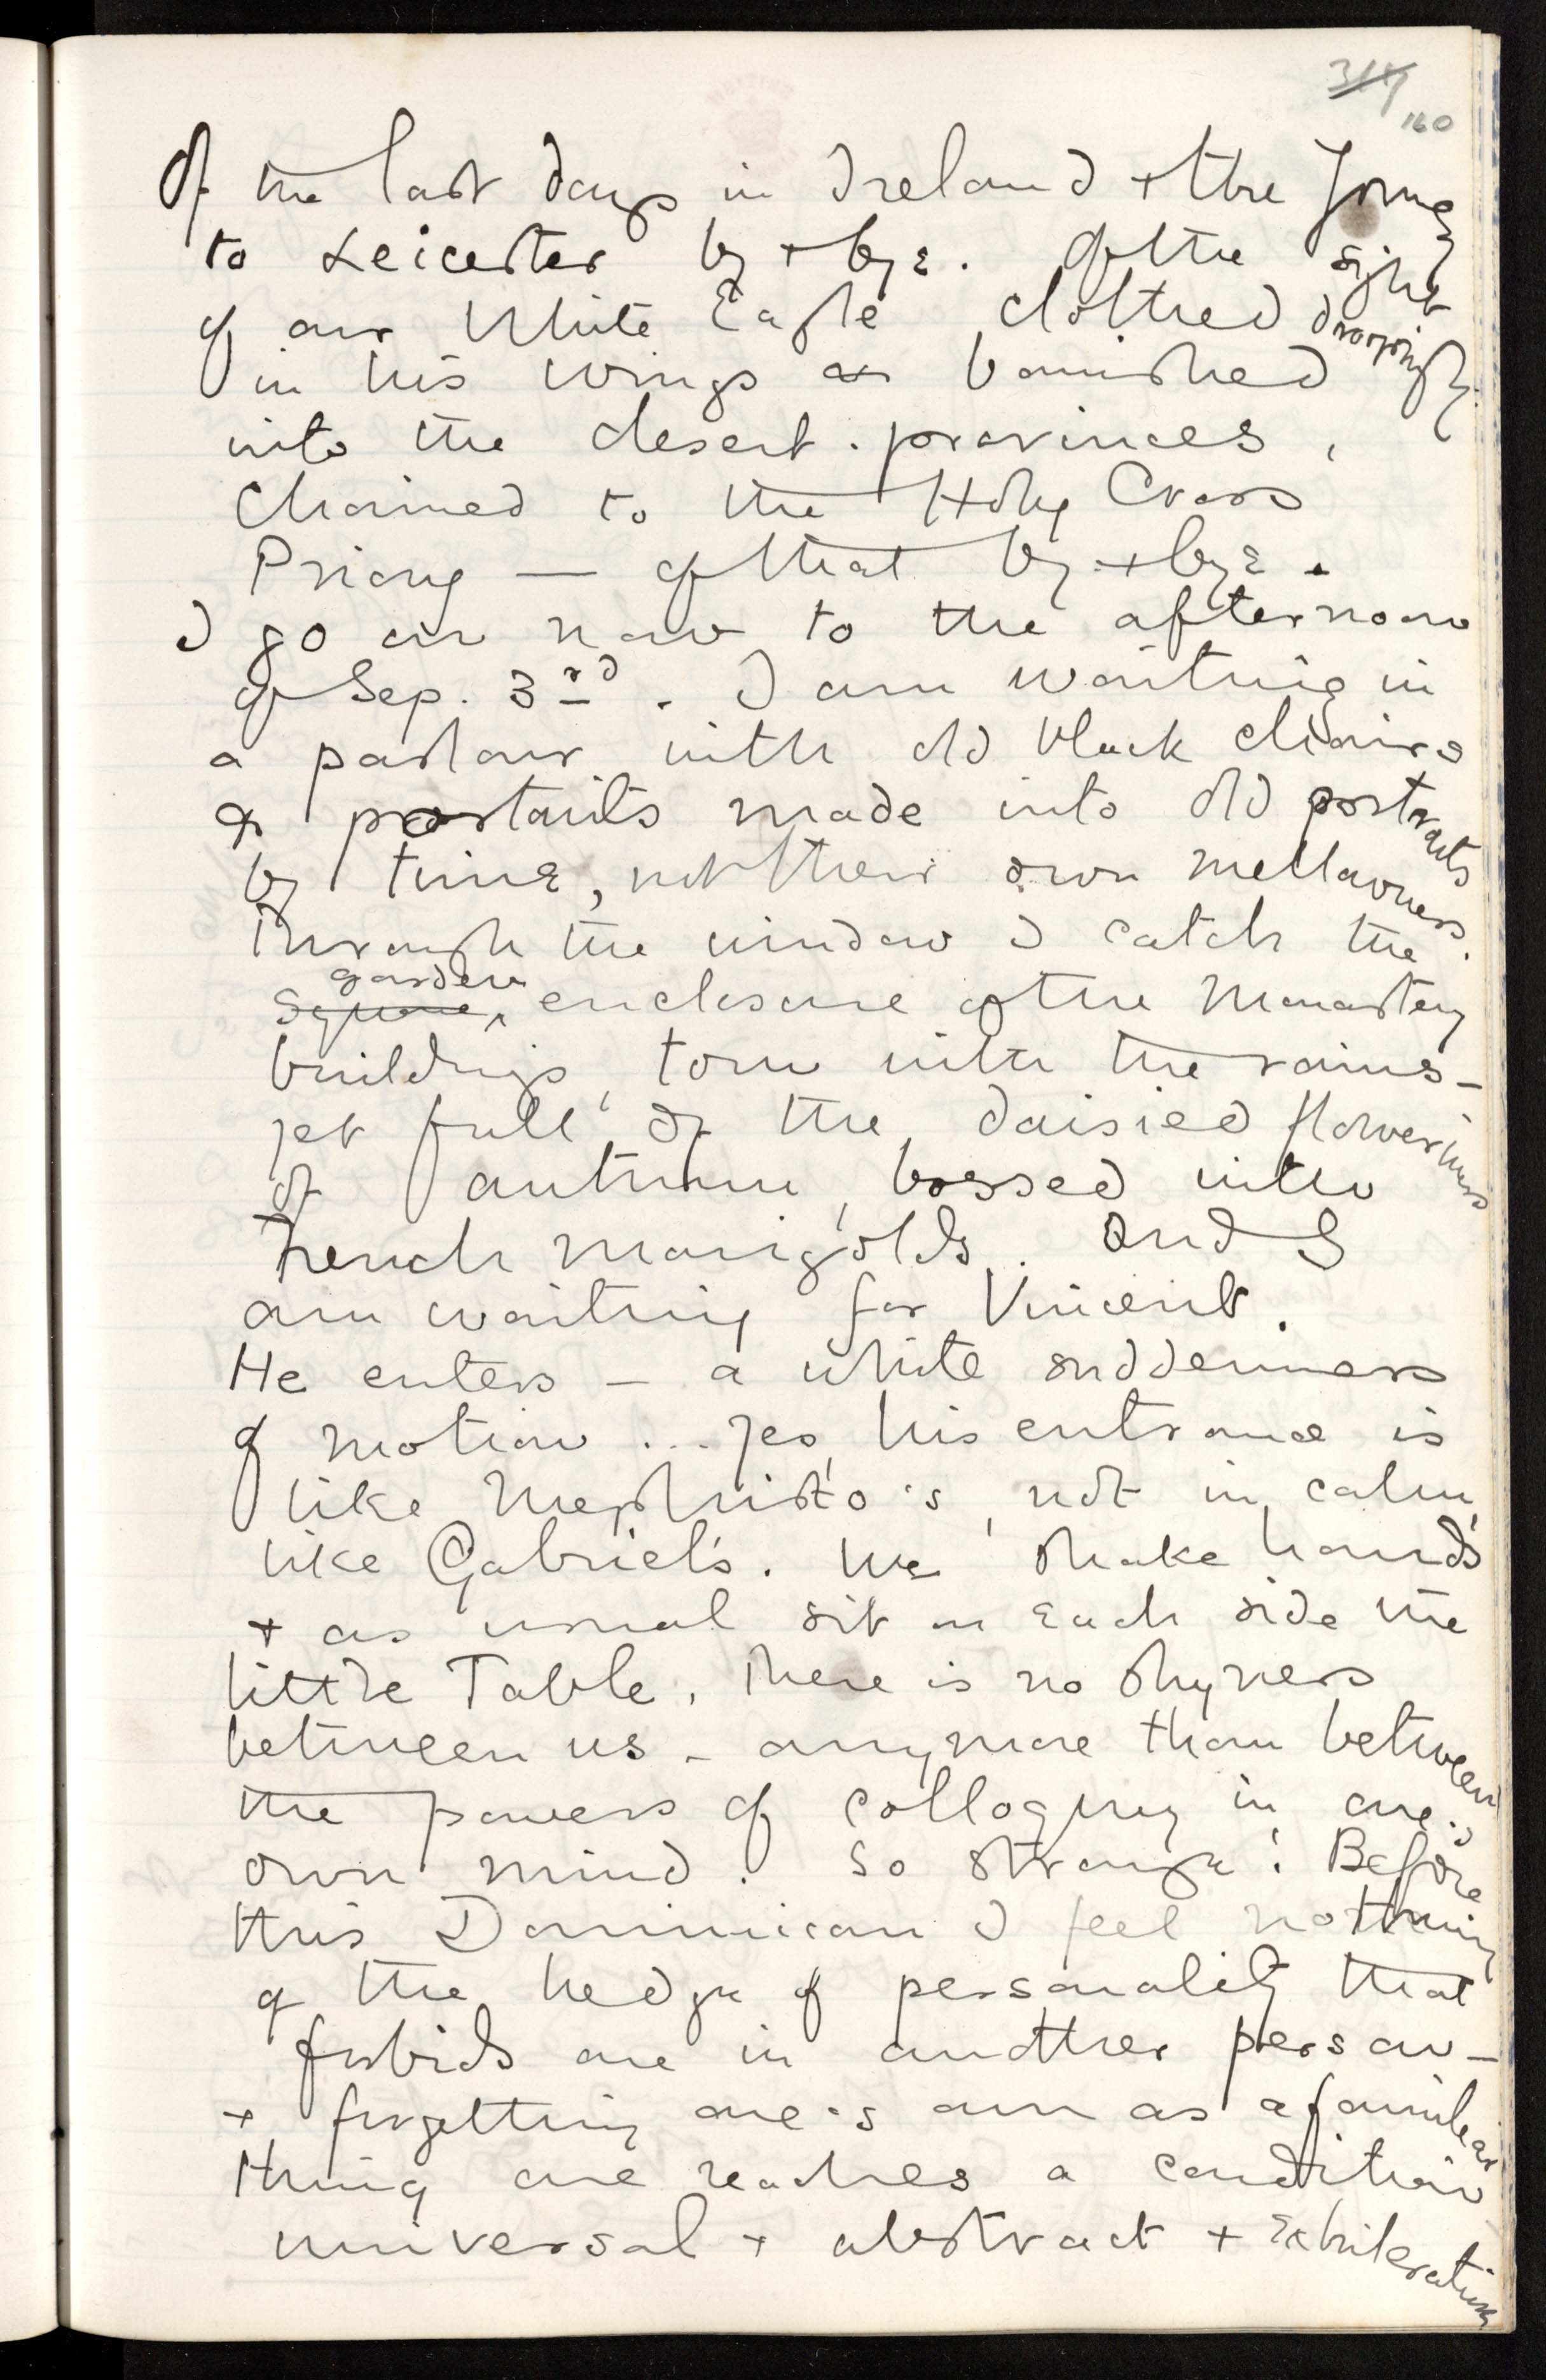 314
160
Of the last days in Ireland + the Journey
to Leicester by + bye. Of the sight
of our White Eagle, clothed droopingly
in his wings as banished
into the desert provinces,
Chained to the Holy Cross
Priory — of that by + bye.
I go on now to the afternoon
of Sep. 3rd. I am waiting in
a parlour with old black chairs
& portaits made into old portraits
by time, not their own mellowness.
Through the window I catch the
square garden enclosure of the Monastery
buildings, torn with the rains —
yet full of the daisied flowerings
of autumn, bossed with
French marigolds. And I
am waiting for Vincent.
He enters — a white suddenness
of motion ... yes, his entrance is
like Mephisto's, not in calm,
like Gabriel's. We shake hands
+ as usual sit on each side the
little Table. There is no shyness
between us — anymore than between
the powers of colloquy in one's
own mind. So strange! Before
this Dominican I feel nothing
of the hedge of personality that
forbids one in another person —
+ forgetting one's own as a familiar
thing one reaches a condition
universal + abstract + exhilerating